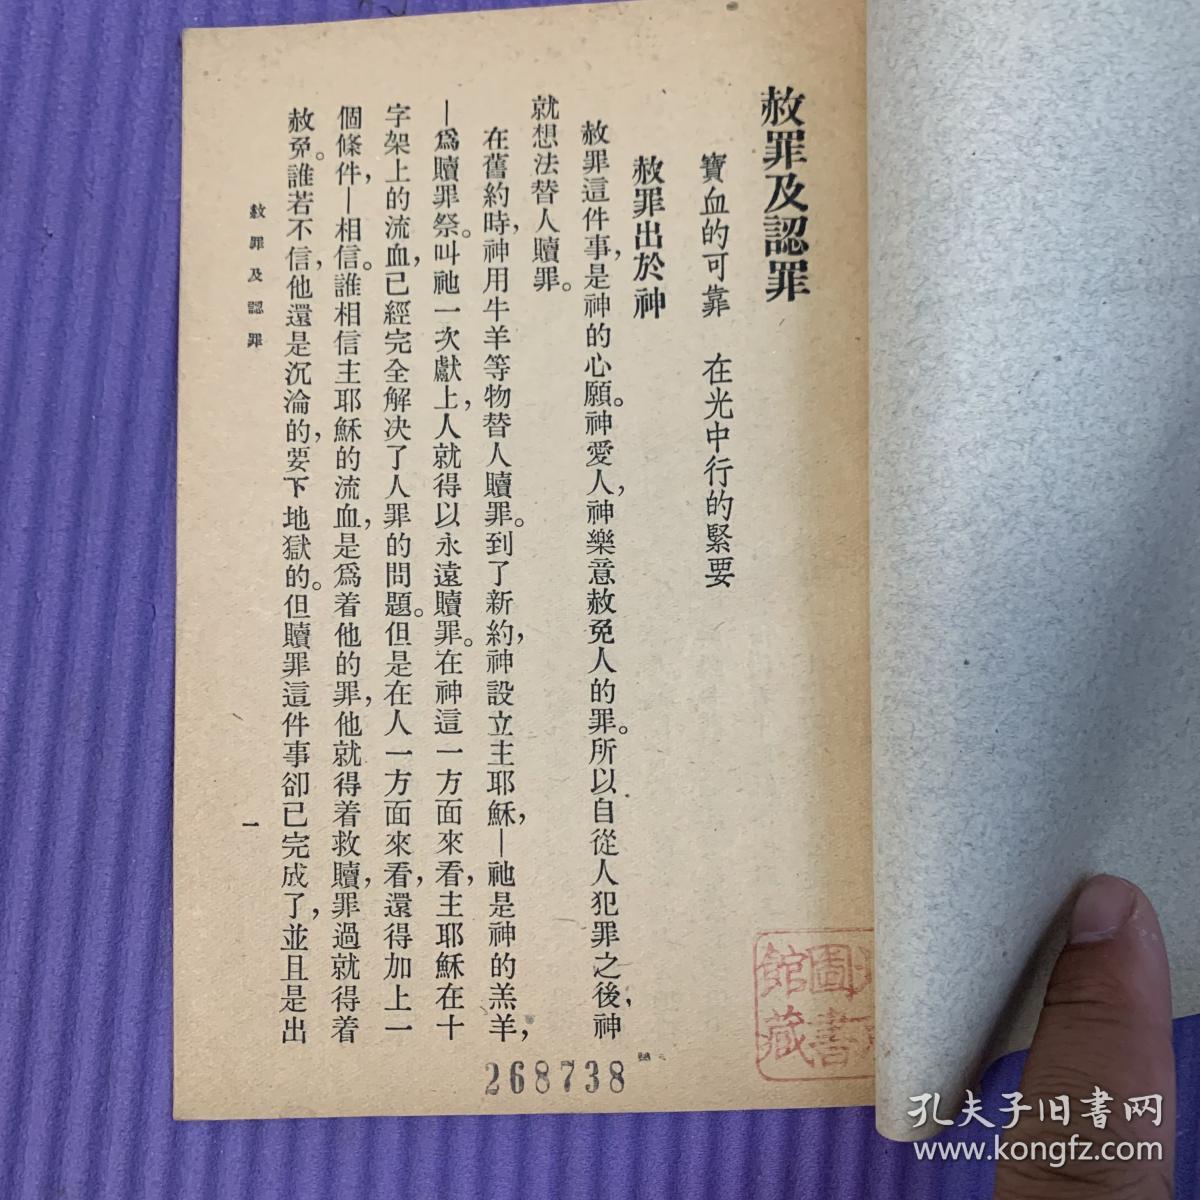 赦罪及認罪
寶血的可靠　在光中行的緊要
赦罪出於神
赦罪這件事，是神的心願。神愛人，神樂意赦免人的罪。所以自從人犯罪之後，神
就想法替人贖罪。
在舊約時，神用牛羊等物替人贖罪。到了新約，神設立主耶穌，—祂是神的羔羊，
—爲贖罪祭。叫祂一次獻上，人就得以永遠贖罪。在神這一方面來看，主耶穌在十
字架上的流血，已經完全解决了人罪的問題。但是在人一方面來看，還得加上一
個條件，—相信。誰相信主耶穌的流血，是爲着他的罪，他就得着救贖，罪過就得着
赦免。誰若不信，他還是沉淪的，要下地獄的。但贖罪這件事卻已完成了，並且是出
赦罪及認罪
一
268738
圖書
館藏
孔夫子旧书网
www.kongfz.com